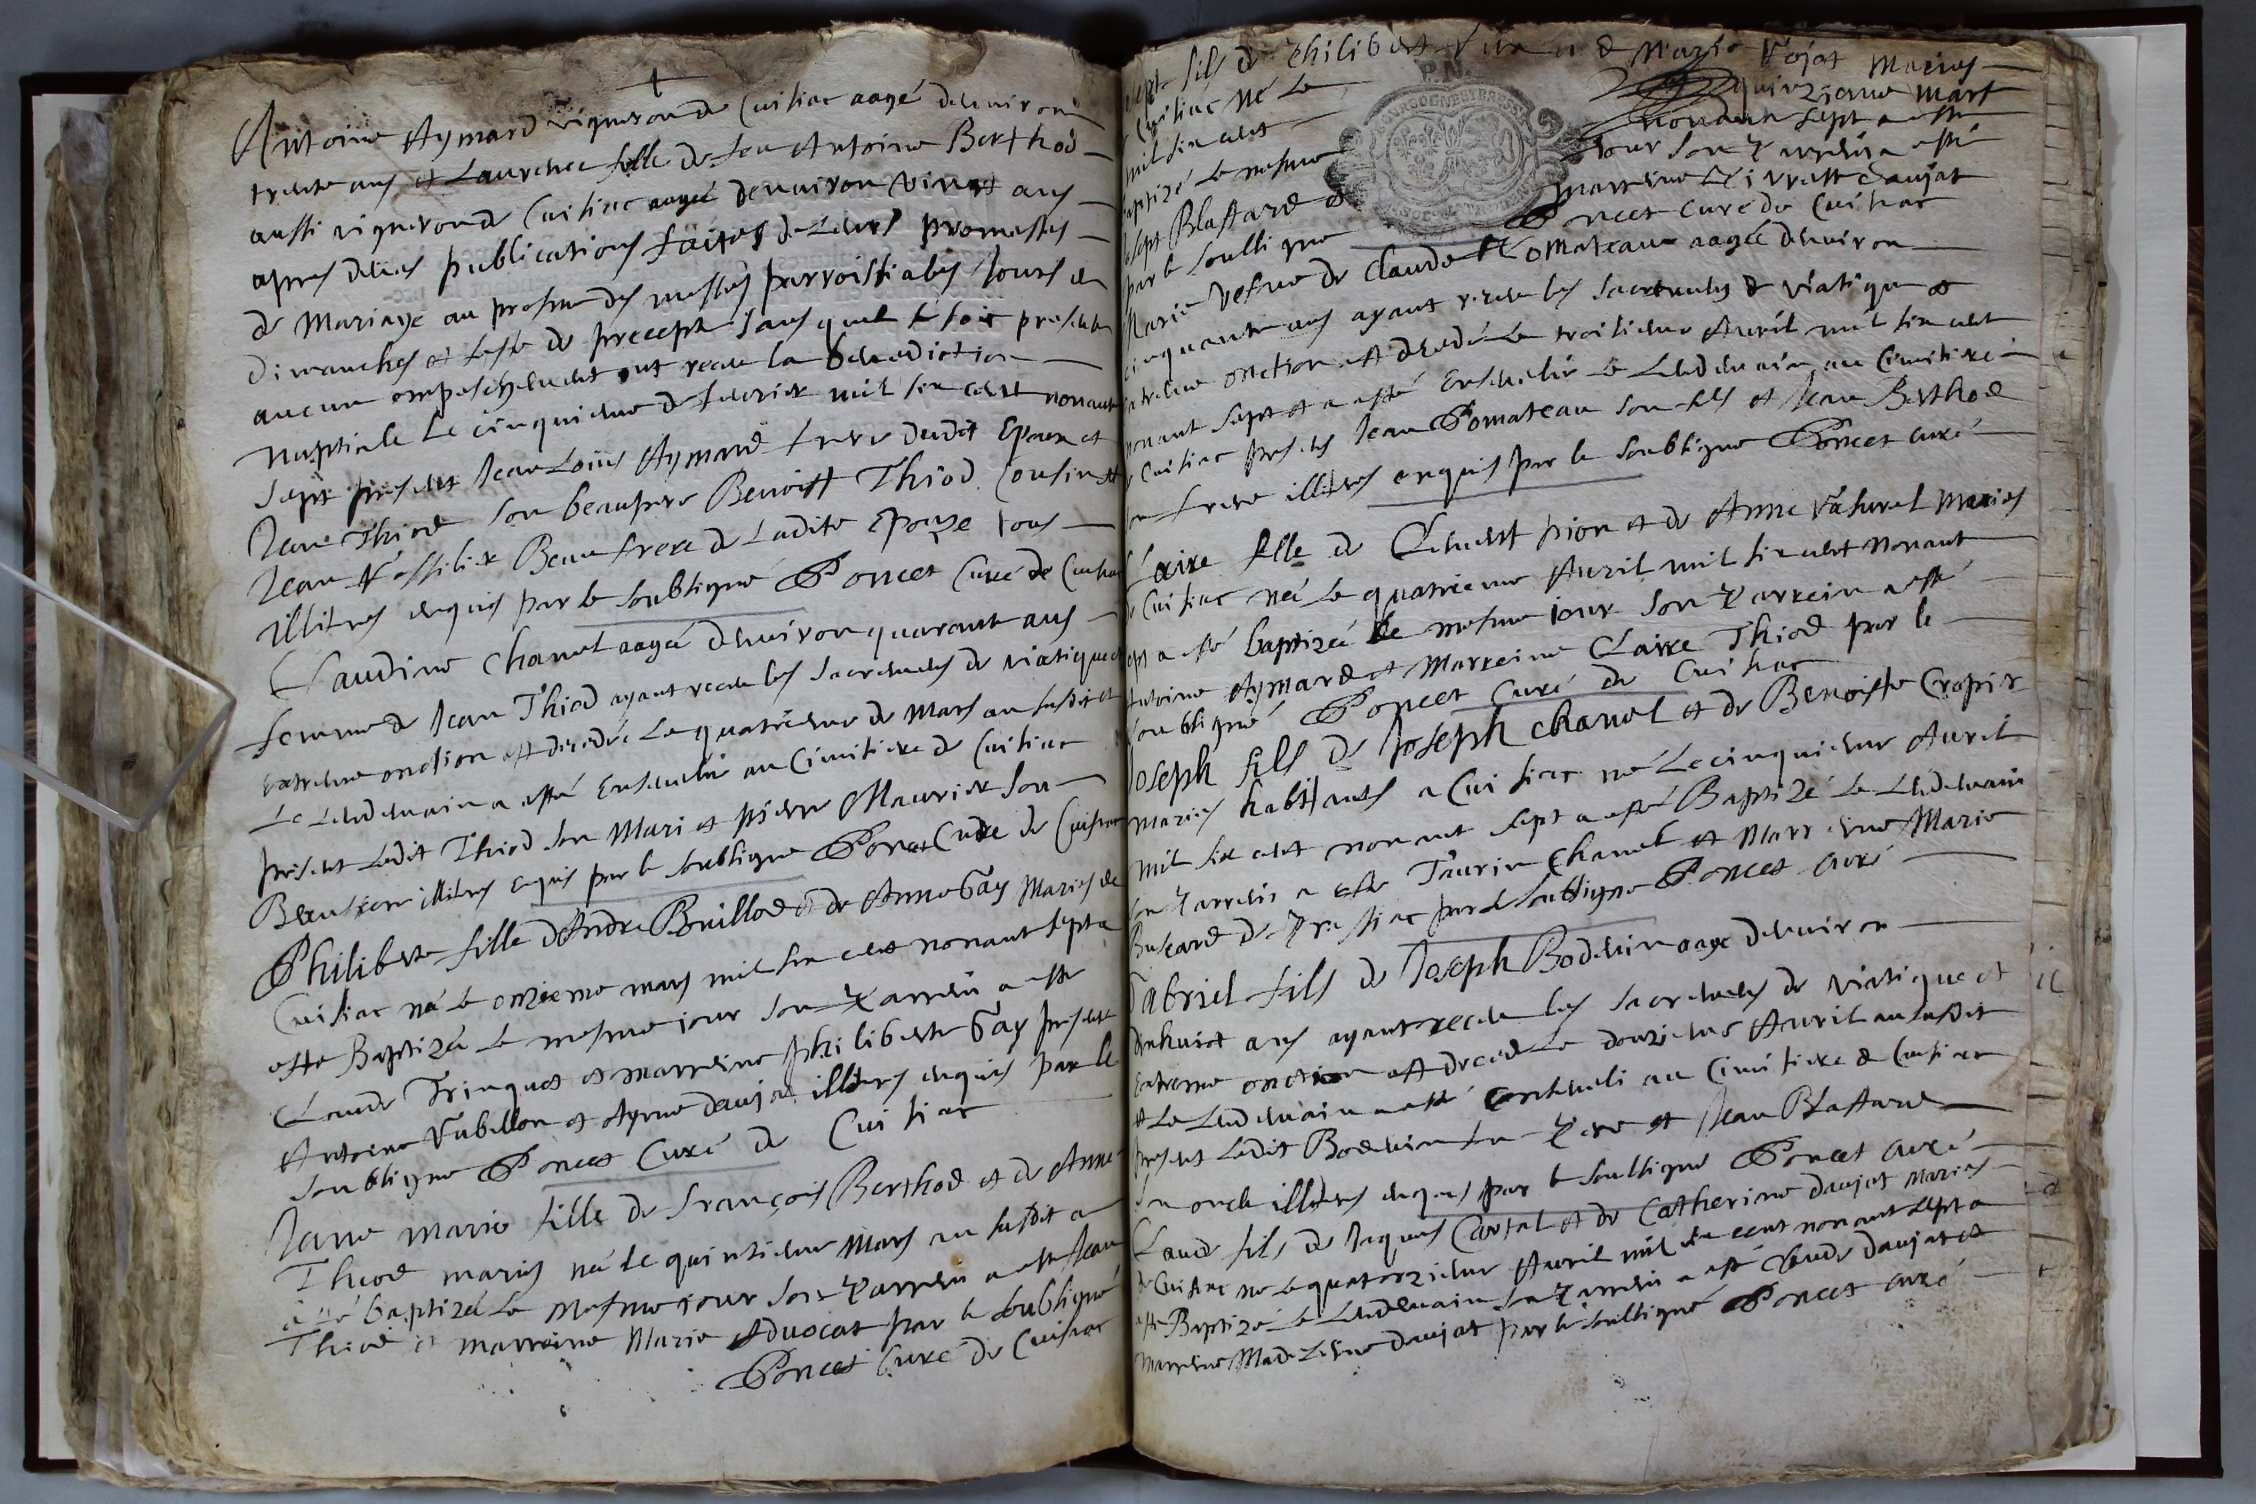 Antoine Aymard vigneron de Cuisiac aagé denviron
trente ans et Laurence fille de feu Antoine Berthod
aussi vigneron de Cuisiac aagée denviron vingt ans
apres deues publications faites de leurs promesses
de Mariage au prosne des messes parroissialles jours de
dimanches et feste de precepte sans quil se soit presenté
aucun empeschement ont receu la benediction
nuptiale le cinquieme de feuvrier mil six cent nonante
sept present Jean Loüis Aymard frere dudit Epoux et
Jean Thiod son beaupere Benoist Thiod Cousin et
Jean Beau frere de ladite Epouze tous
illitres enquis par le soubsigné Poncet Curé de Cuisiac
Claudine Chanel aagée denviron quarante ans
femme de Jean Thiod ayant receu les sacremens de viatique et
extreme onction est decedée le quatrieme de Mars au susdit et
le lendemain a esté Ensevelie au Cimitiere de Cuisiac
present ledit Thiod son Mari et pierre Maurier son
Beaufrere illitres enquis par le soubsigné Poncet Curé de Cuisiac
Philiberte fille dAndré Buillod et de Anne Gay Mariés de
Cuisiac né le onzieme mars mil six cent nonant sept a
esté Baptizée le mesme jour son Parrein a esté
Claude Trinquet et marreine philiberte Gay present
Antoine Vubillon et Ayme daujat illitres enquis par le
soubsigné Poncet Curé de Cuisiac
Jane marie fille de François Berthod et de Anne
Thiod mariés née le quinzieme Mars au susdit a
été baptizée le mesme jour son Parrein a esté Jean
Thiod et marreine Marie Advocat par le soubsigné
Poncet Curé de Cuisiac
fils de Philibert et de Marie Mariés
Cuisiac né le quinzieme mars
mil six cent nonante sept a esté
baptizé le mesme jour son Parrein a esté
Joseph Blassard et marreine daujat
par le soubsigné Poncet Curé de Cuisiac
Marie vefve de Claude Pomateau aagée denviron
cinquante ans ayant receu les sacremens de viatique et
extreme onction est decedée le troisieme Avril mil six cent
nonant sept et a esté Ensevelie le lendemain au Cimitiere
de Cuisiac presents Jean Pomateau son fils et Jean Berthod
son frere illitres enquis par le soubsigné Poncet curé
Claire fille de Clement pion et de Anne Mariés
de Cuisiac née le quatrieme Avril mil six cent nonant
sept a esté baptizée le mesme jour son Parrein a esté
Antoine Aymard et Marreine Claire Thiod par le
soubsigné Poncet Curé de Cuisiac
Joseph fils de Joseph Chanel et de Benoiste Cropier
Mariés habitants a Cuisiac né le cinquieme Avril
mil six cent nonant sept a esté Baptizé le lendemain
son Parrein a esté Taurin Chanel et Marreine Marie
Buscard de par le soubsigné Poncet curé
Gabriel fils de Joseph Bodevin aagé denviron
dixhuict ans ayant receu les sacremens de viatique et
Extreme onction est decedé le douzieme Avril au susdit
et le lendemain a esté Enseveli au Cimitiere de Cuisiac
present ledit Bodevin son Pere et Jean Blassard
son oncle illitres enquis par le soubsigné Poncet curé
Claude fils de Jaques Cartal et de Catherine daujat mariés
de Cuisiac né le quatorzieme Avril mil six cent nonant sept a
esté Baptizé le lendemain son Parrein a esté Claude daujat et
marreine Madeleine daujat par le soubsigné Poncet curé